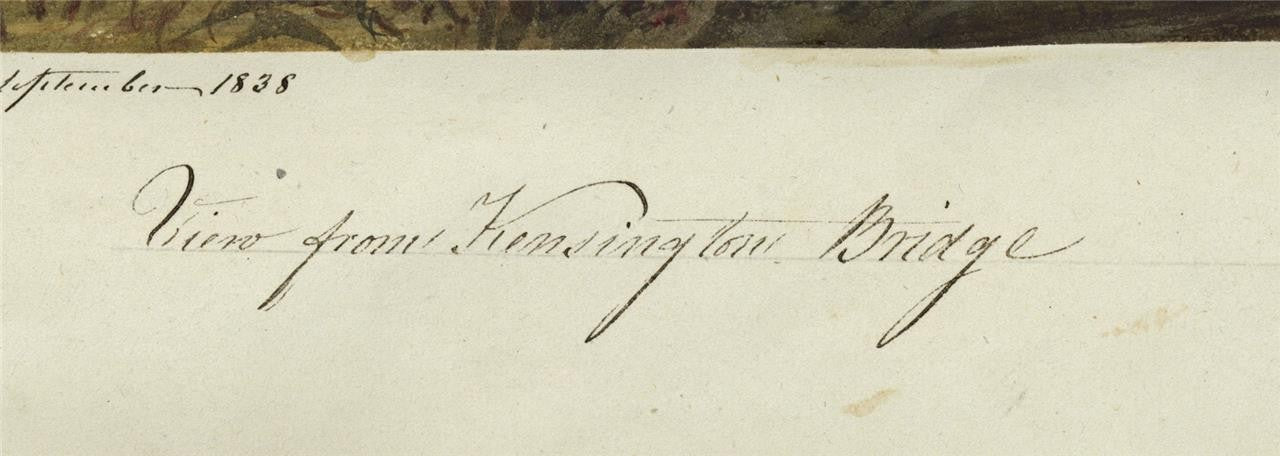 September 1838
View from Kensington Bridge